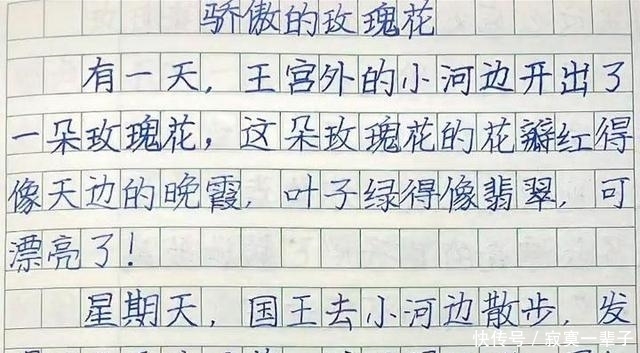 骄傲的玫瑰花
有一天，王宫外的小河边开出了
一朵玫瑰花，这朵玫瑰花的花瓣红得
像天边的晚霞，叶子绿得像翡翠，可
漂亮了！
星期天，国王去小河边散步，发
快传号／寂寞一辈子